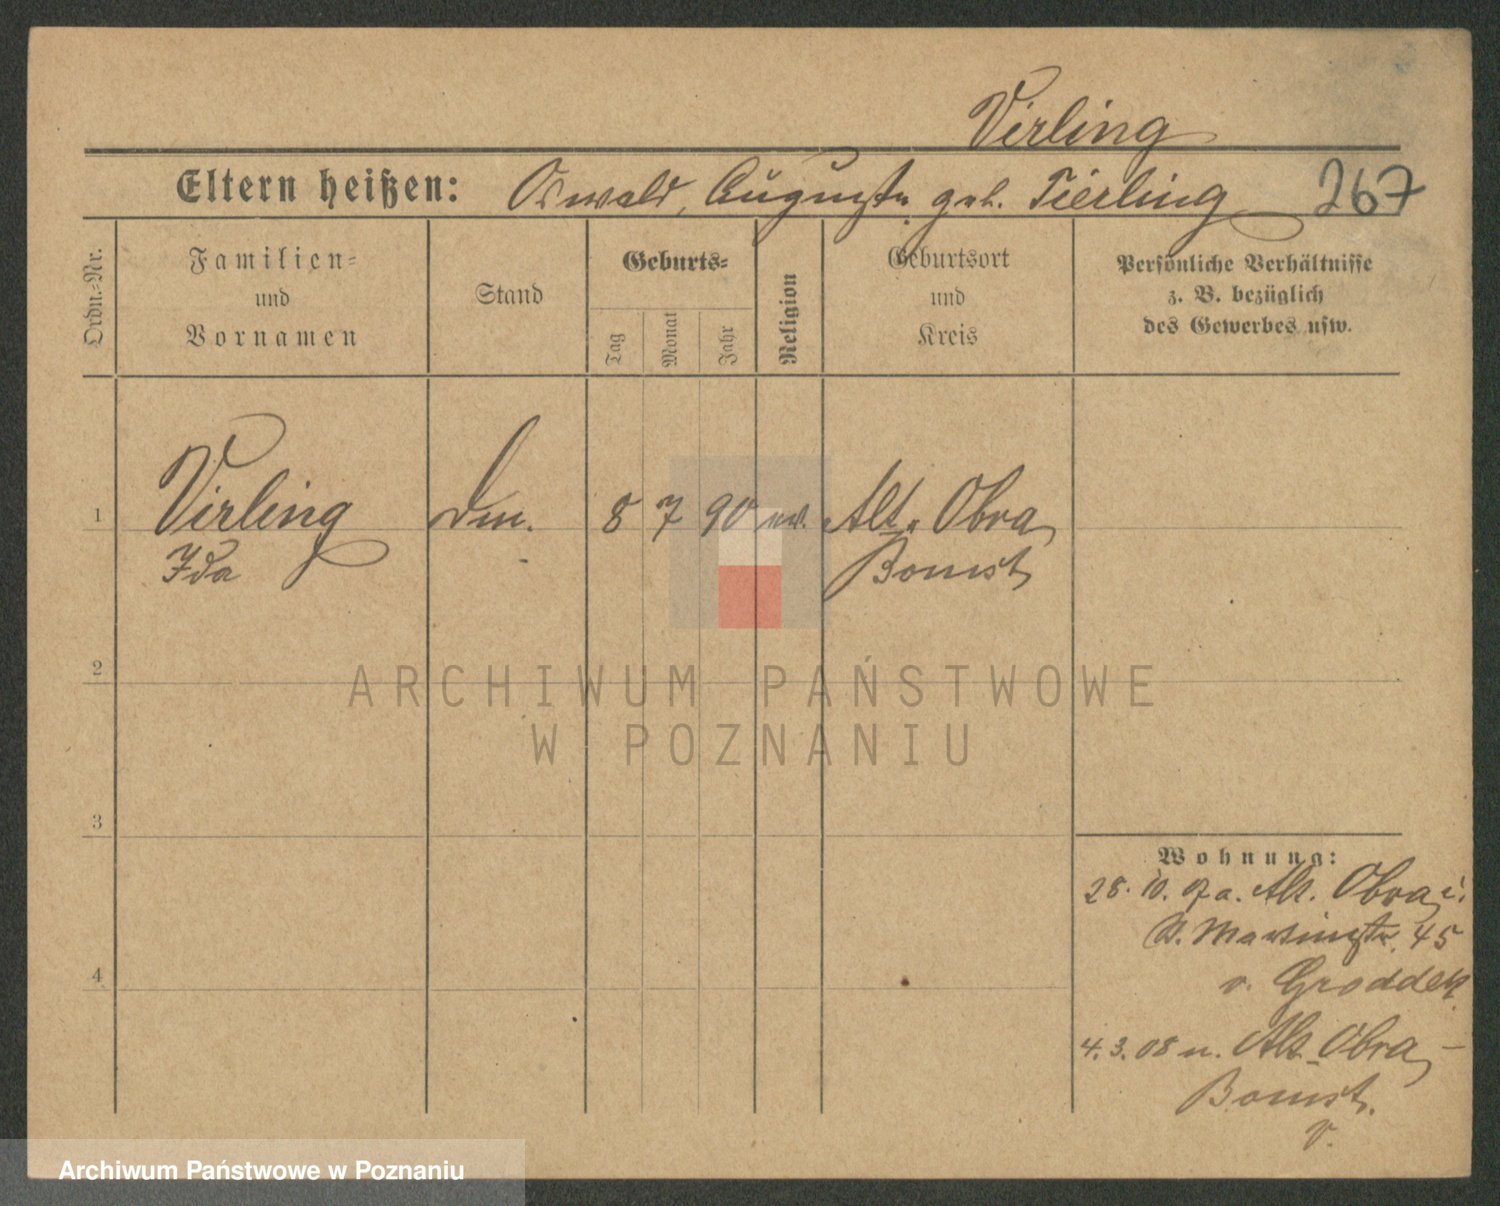 Virling
Eltern heißen: Oswald, Auguste geb. Tierling 267
Ordn.-Nr.
Familien-
und
Vornamen
Stand
Geburts-
Tag
Monat
Jahr
Religion
Geburtsort
und
Kreis
Persönliche Verhältnisse
z. B. bezüglich
des Gewerbes usw.
1 Virling 8 7 90 ev. Alt-Obra
Ida Bomst
2
3
4
Wohnung:
28. 10. 07 a. Alt. Obra i.
St. Martinstr. 45
v. Groddek
4. 3. 08 n. Alt-Obra -
Bomst.
V.
ARCHIWUM PAŃSTWOWE
W POZNANIU
Archiwum Państwowe w Poznaniu